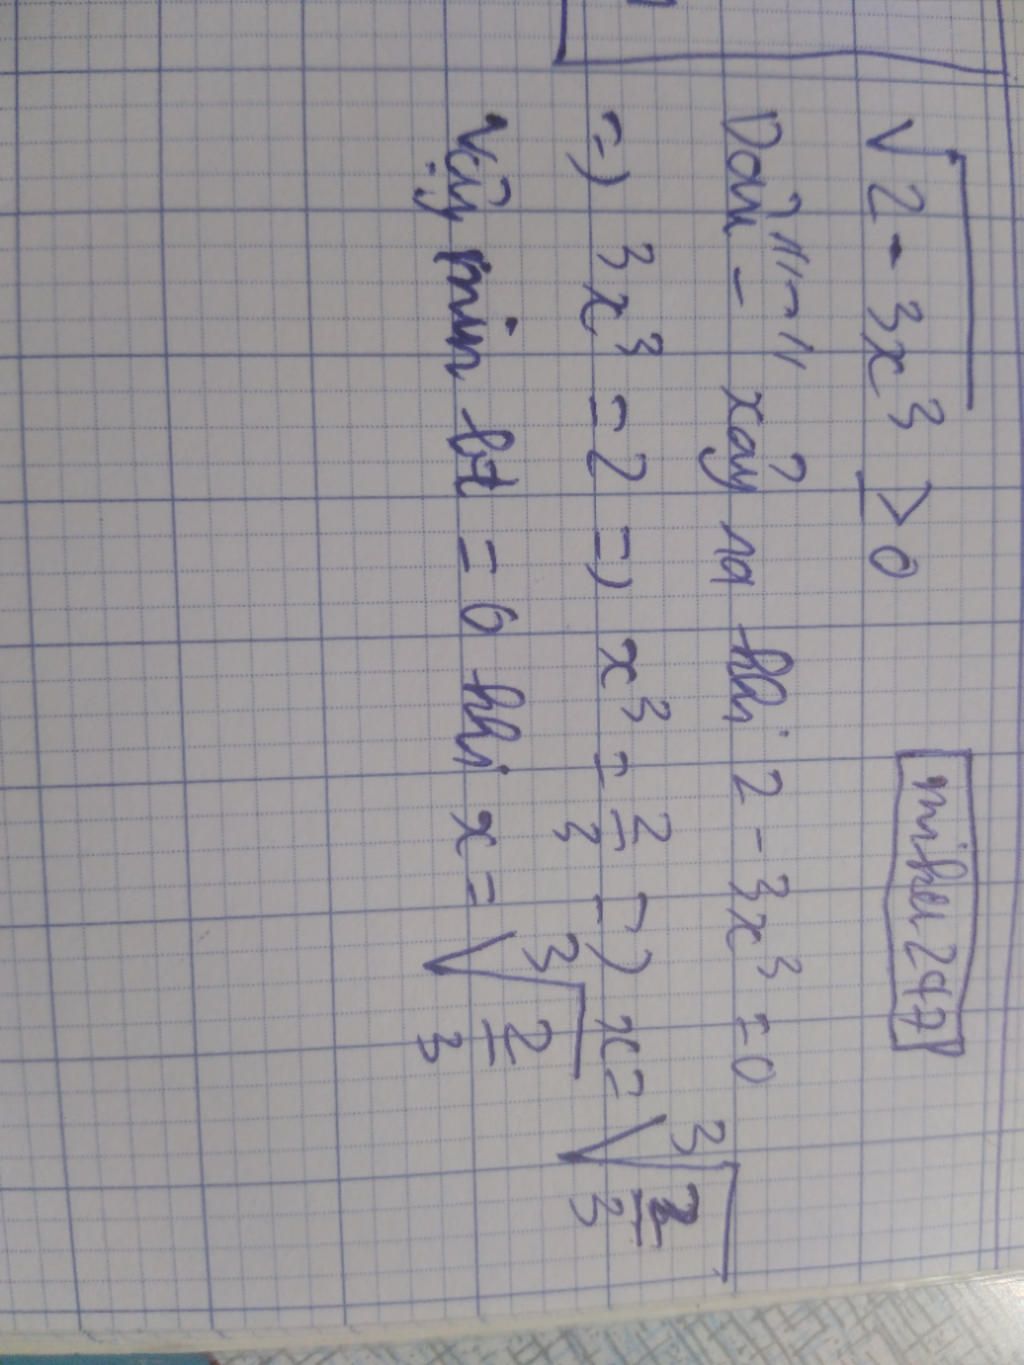 √2 - 3x³ ≥ 0
mikew247
Dấu "=" xảy ra khi 2 - 3x³ = 0
=) 3x³ = 2 =) x³ = 2/3 =) x = ³√2/3
Vậy min bt = 0 khi x = ³√2/3